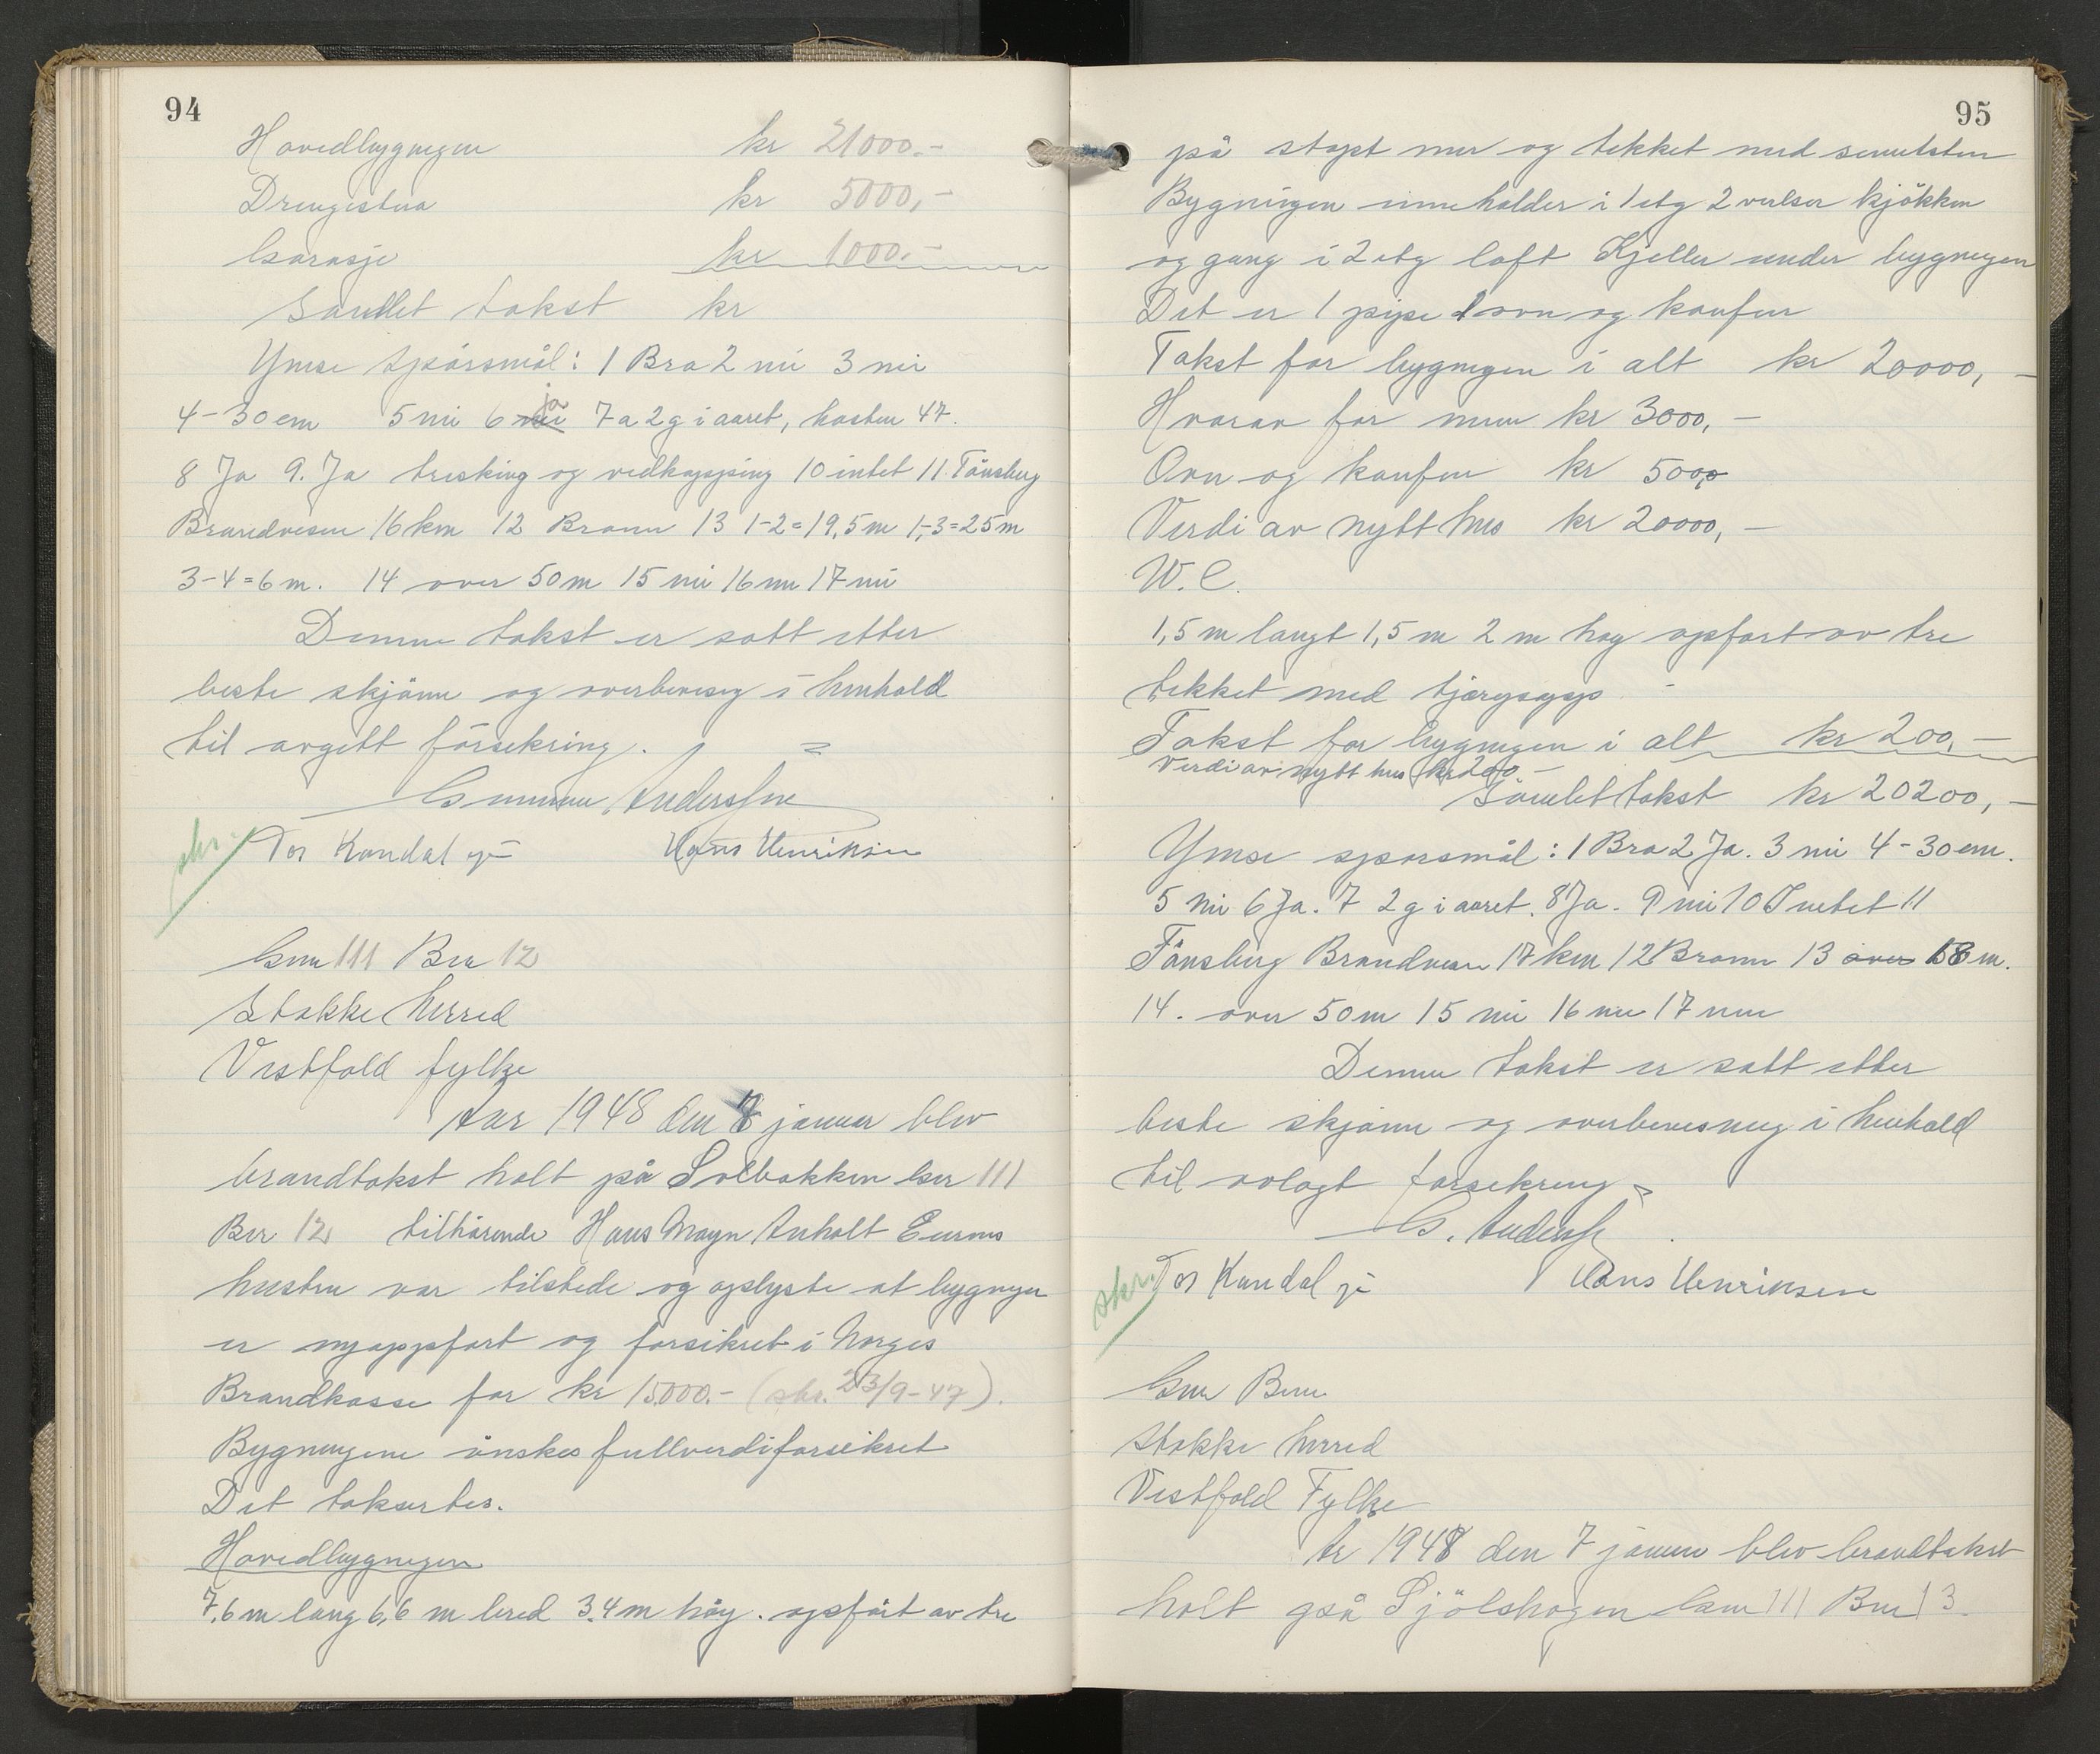 94
Hovedbygnigen kr 21000.-
Drengestua kr 5000,-
Garasje kr 1000.-
Samllet takst kr
Ymse spørsmål: 1 Bra 2 nei 3 nei
4 - 30 cm 5 nei 6 ja 7 a 2 g i aaret, høsten 47.
8 Ja 9. Ja tresking og vedkapping 10 intet 11 Tønsberg
Brandvesen 16 km 12 Brønn 13 1-2=19,5 m 1-3=25 m
3-4=6 m. 14 over 50 m 15 nei 16 nei 17 nei
Denne takst er satt etter
beste skjønn og overbevisng i henhold
til avgitt försekring.
Gunnar Anderssen
skr. Tor Kandal Hans Henriksen
Gnr 111 Bnr 12
Stokke herred
Vestfold fylke
Aar 1948 den 7 januar blev
brandtakst holt på Solbakken Gnr 111
Bnr 12 tilhörende Hans Magn Anholt
hustru var tilstede og oplyste at bygngen
er nyoppført og forsikret i Norges
Brandkasse for kr 15.000.- (skr. 23/9-47).
Bygningene ønskes fullverdiforsikret
Det taksertes.
Hovedbygnigen
7,6 m lang 6,6 m bred 3,4 m høy. opført av tre
95
på støpt mur og tekket med sementsten
Bygningen inneholder i 1 etg 2 verlser kjökken
og gang i 2 etg loft Kjeller under bygnigen
Det er 1 pipe 1 ovn og komfur
Takst for bygnigen i alt kr 20000,-
Hvorav for muren kr 3000,-
Ovn og komfur kr 500,
Verdi av nytt hus kr 20000,-
W.C.
1,5 m langt 1,5 m 2 m høy opført av tre
tekket med tjærepapp
Takst for bygnigen i alt kr 200,-
Verdi av nytt hus kr 200.-
Samlet takst kr 20200,-
Ymse spørsmål: 1 Bra 2 Ja. 3 nei 4 - 30 cm.
5 Nei 6 Ja. 7 2 g i aaret. 8 Ja. 9 nei 10 Intet 11
Tønsberg Brandvesen 17 km 12 Brønn 13 over m.
14. over 50 m 15 nei 16 nei 17 nei
Denne takst er satt etter
beste skjønn og overbevisning i henhold
til avlagt forsekring
G. Anderssen
skr. Tor Kandal Hans Henriksen
Gnr Bnr
Stokke herred
Vestfold Fylke
År 1948 den 7 januar blev brandtakst
holt på Sjölskogen Gnr 111 Bnr 13.